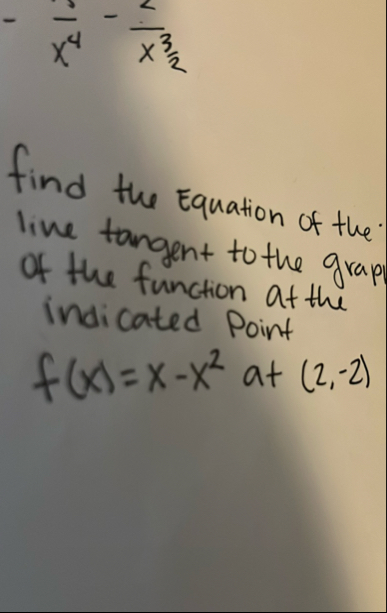 - — - —
x⁴ x^3/2
find the Equation of the
line tangent to the
of the function at the
indicated Point
f(x)=x-x² at (2,-2)